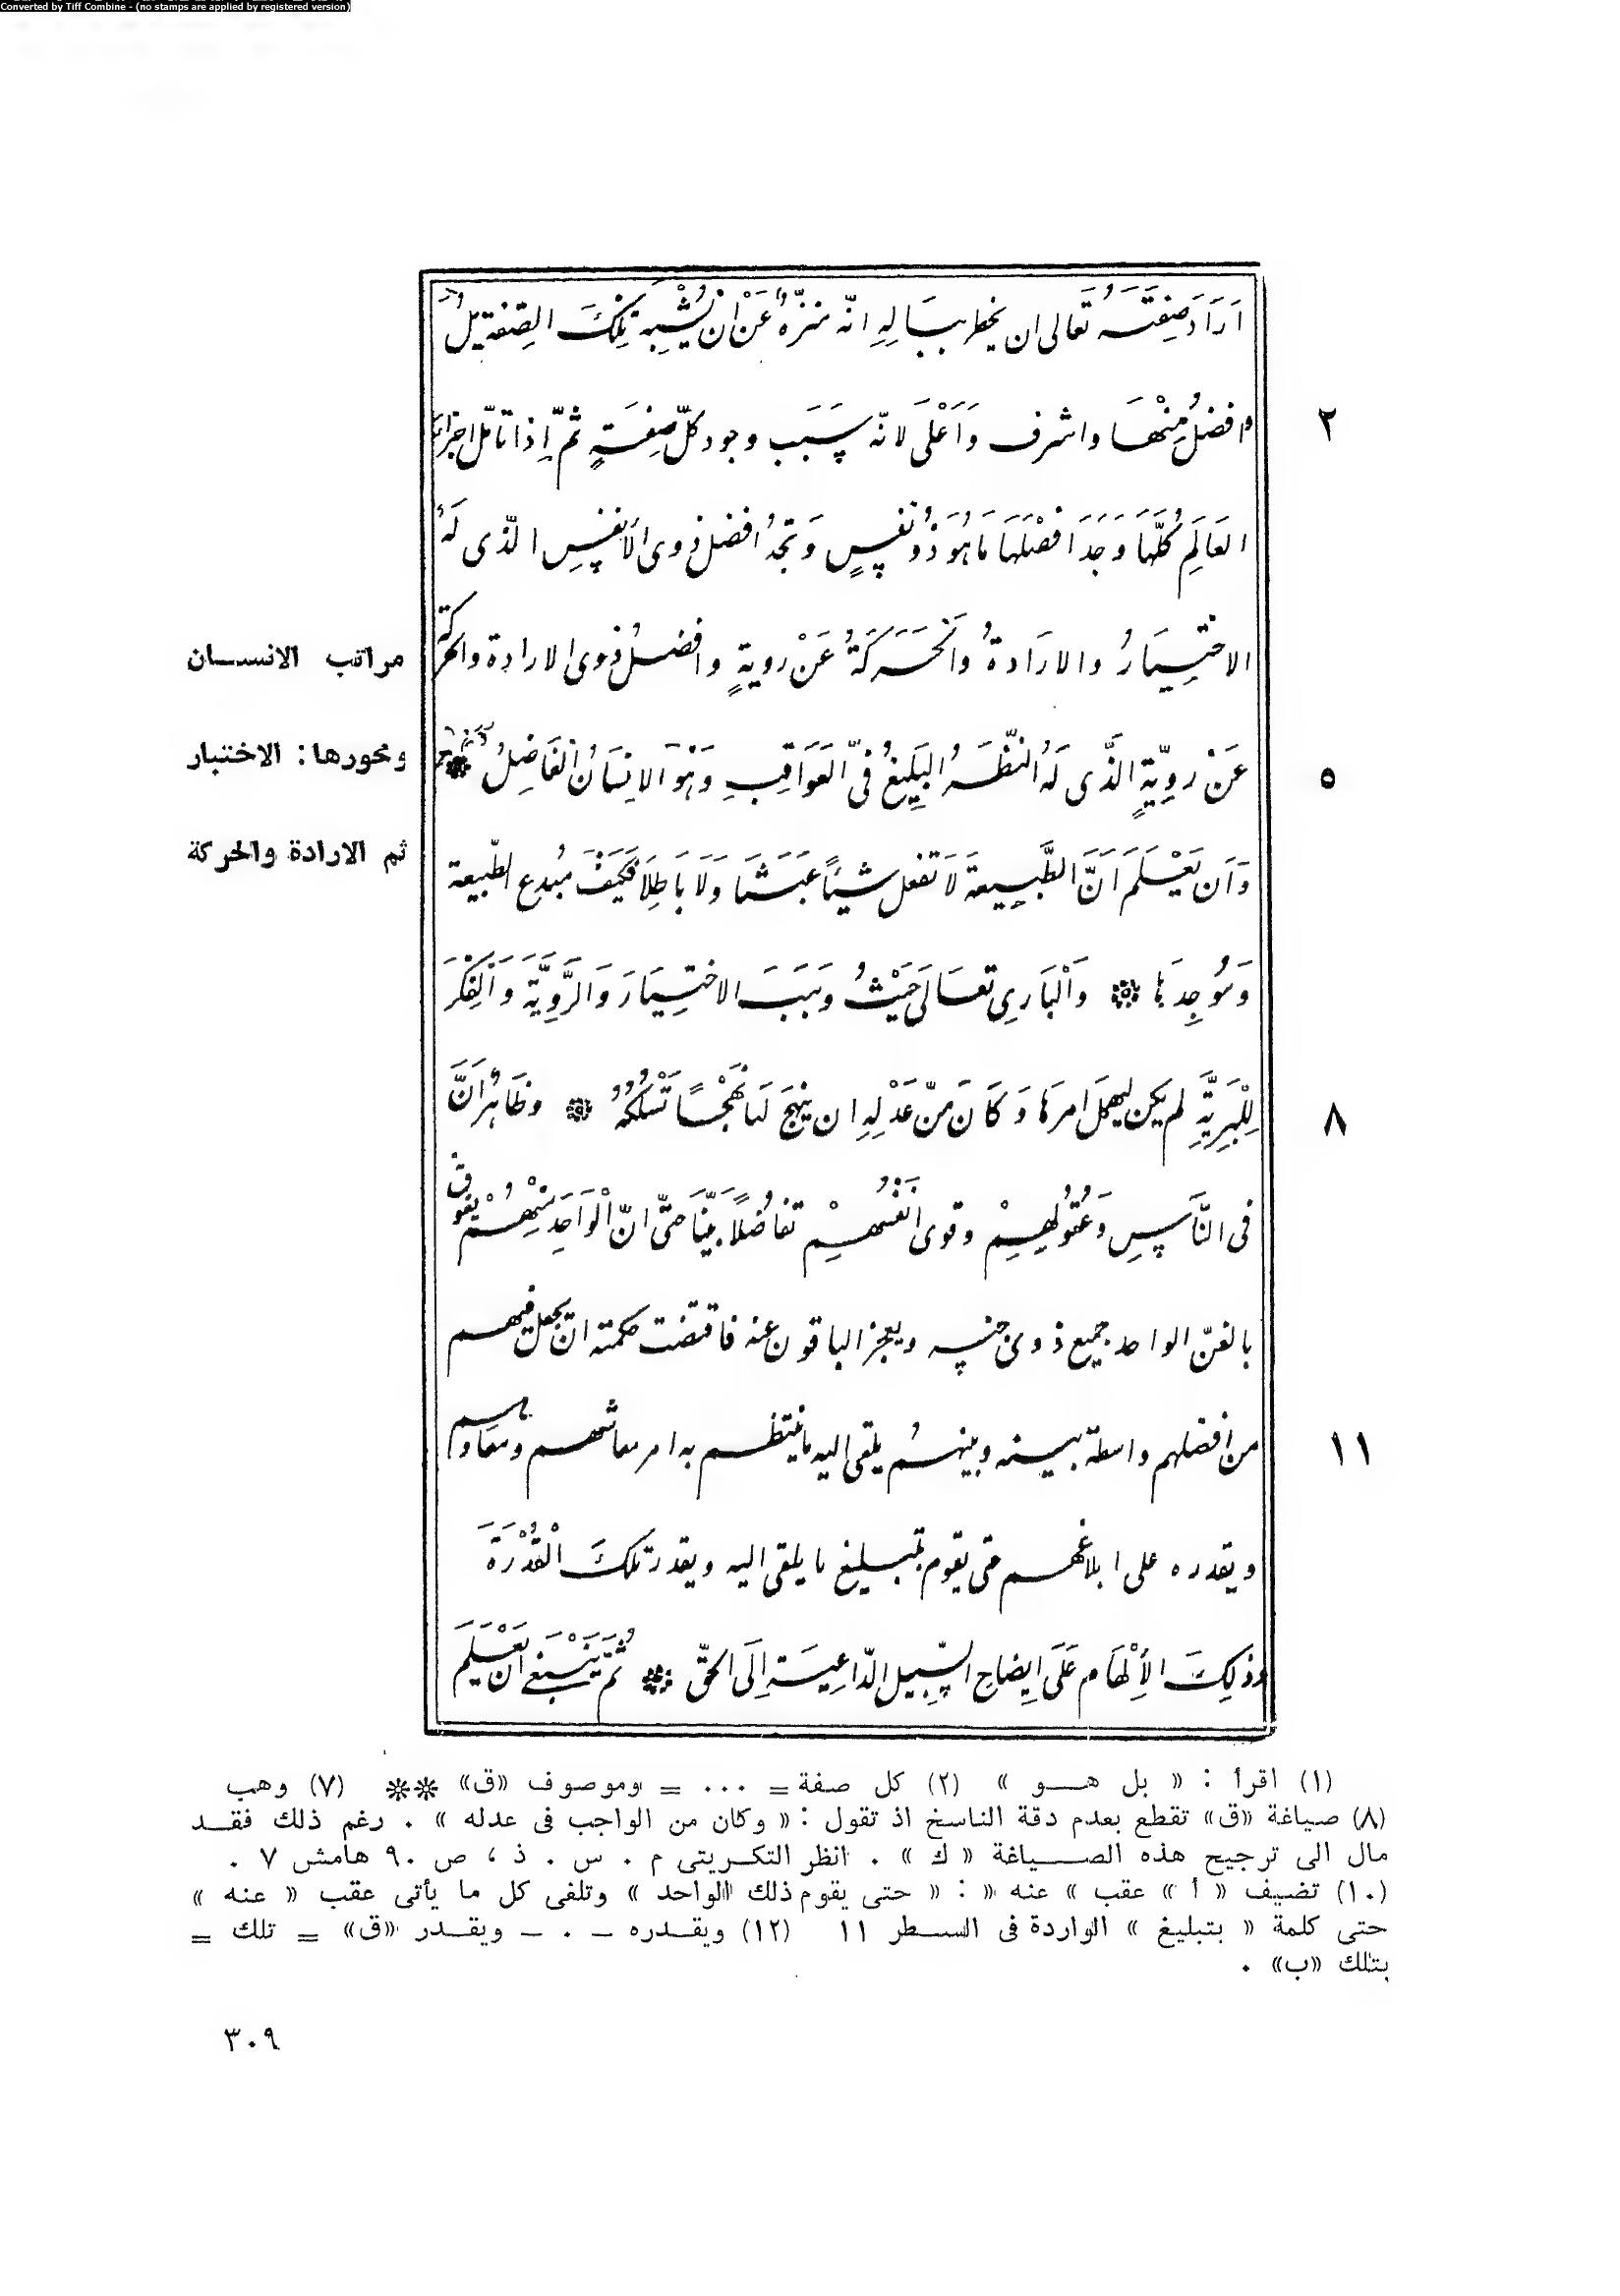 Converted by Tiff Combine - (no stamps are applied by registered version)
اَرَادَ صِفَتَهُ تَعالى ان يخطر بِبَالِهِ انّه منزّهٌ عَنْ ان يُشْبِهَ تِلكَ الصِفة بل
وافضلُ مِنْهَا واشرف وَاَعْلَى لانّه سَبَب وجود كلّ صِفَةٍ ثمّ إذا تامّل اجزاء
٢
العَالَمِ كُلَّها وَجَدَ افضَلَهَا مَا هُوَ ذُو نَفسٍ وَتجدُ افضل ذوى الأنفسِ الّذى لَهُ
الاختِيَارُ والارَادةُ وَالحَركَةُ عَنْ رويةٍ وافضلُ ذوى الارادة والحركة
مراتب الانسان
عَنْ رويّةٍ الَّذى لَهُ النّظَرُ البَلِيغُ فِى العَوَاقِبِ وَهُوَ الاِنسَانُ الفَاضِلُ
ومحورها: الاختبار
٥
وَاَن يَعْلَمَ اَنَّ الطَّبِيعةَ لَا تفعل شيئاً عَبَثَا وَلَا بَاطِلَا فكَيفَ مُبدع الطّبيعة
ثم الارادة والحركة
وَمُوجِدهَا وَالْبَارِى تَعَالَى حَيْثُ وهَبَ الاختِيَارَ وَالرَّوِيَّةَ وَالْفِكَرَ
لِلْبَرِيَّةِ لم يكن ليهمل امرهَا وَكَانَ مِنْ عَدْلِهِ ان ينهَجَ لهَا نَهْجًا تَسْلُكُهُ وظاهرٌ اَنَّ
٨
فى النَّاسِ وَعُقُولِهِمْ وقوى اَنفُسِهِمْ تفاضُلاً بيِّنَاً حتّى انّ الْوَاحِدَ مِنْهُمْ يَفُوق
بالفنّ الواحد جميع ذوى جنسه ويعجز الباقون عنه فاقتضت حكمته ان يجعل فيهم
من افضلهم واسطة بينه وبينهُم يلقى اليه ما ينتظم به امر معاشهم ومعادهم
١١
ويقدره على ابلاغهم حتى يقوم بتبليغ ما يلقى اليه ويقدر تلكَ الْقُدْرَةَ
وذلِكَ الأِلْهَام عَلَى اِيضاحِ السَّبِيل الدّاعِيَة اِلَى الحَقّ ثُمَّ يَنْبَغى اَن يَعْلَمَ
(١) اقرأ : « بل هــو » (٢) كل صفة = ... = وموصوف «ق» ** (٧) وهب
(٨) صياغة «ق» تقطع بعدم دقة الناسخ اذ تقول : « وكان من الواجب فى عدله » . رغم ذلك فقد
مال الى ترجيح هذه الصياغة « ك » . انظر التكريتى م . س . ذ ، ص ٩٠ هامش ٧ .
(١٠) تضيف « أ » عقب » عنه « : « حتى يقوم ذلك الواحد » وتلفى كل ما يأتى عقب « عنه »
حتى كلمة « بتبليغ » الواردة فى السطر ١١ (١٢) ويقدره – . – ويقدر «ق» = تلك =
بتلك «ب» .
٣٠٩